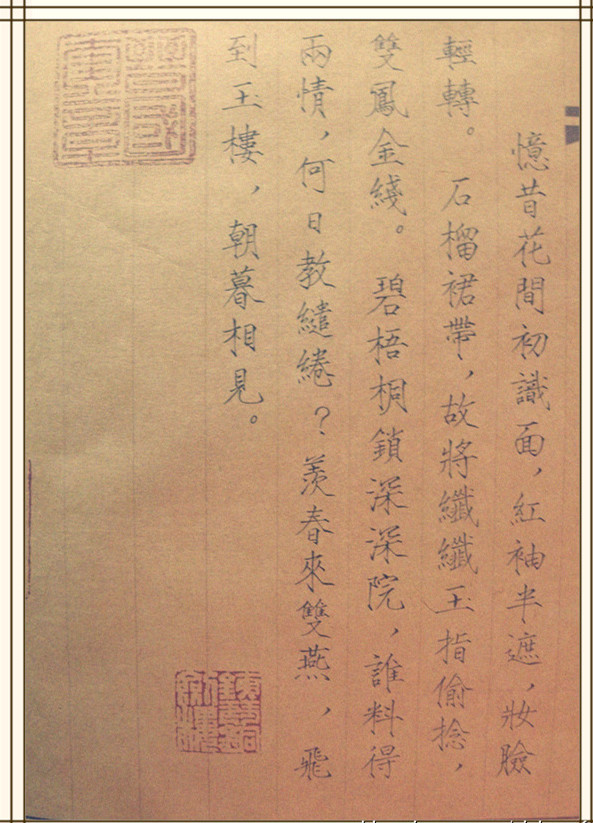 憶昔花間初識面，紅袖半遮，妝臉
輕轉。石榴裙帶，故將纖纖玉指偷捻，
雙鳳金綫。碧梧桐鎖深深院，誰料得
兩情，何日教繾綣？羨春來雙燕，飛
到玉樓，朝暮相見。